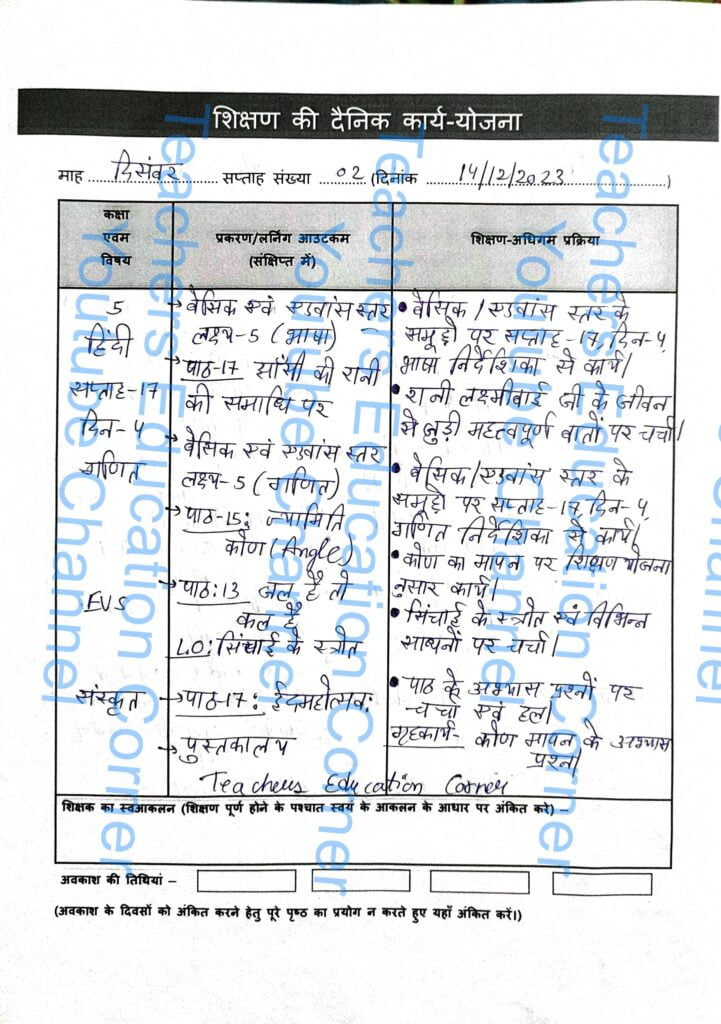 शिक्षण की दैनिक कार्य-योजना
माह दिसंबर सप्ताह संख्या 02 (दिनांक 14/12/2023)
कक्षा
एवम
विषय
प्रकरण/लर्निंग आउटकम
(संक्षिप्त में)
शिक्षण-अधिगम प्रक्रिया
5
हिंदी
सप्ताह-17
दिन-4
→ बेसिक एवं एडवांस स्तर
लक्ष्य-5 (भाषा)
→ पाठ-17 झाँसी की रानी
की समाधि पर
• बेसिक / एडवांस स्तर के
समूहों पर सप्ताह-17, दिन-4,
भाषा निर्देशिका से कार्य।
• रानी लक्ष्मीबाई जी के जीवन
से जुड़ी महत्वपूर्ण बातों पर चर्चा।
गणित
→ बेसिक एवं एडवांस स्तर
लक्ष्य-5 (गणित)
→ पाठ-15: ज्यामिति
कोण (Angle)
• बेसिक/एडवांस स्तर के
समूहों पर सप्ताह-17, दिन-4,
गणित निर्देशिका से कार्य।
• कोण का मापन पर शिक्षण योजना
नुसार कार्य।
EVS
→ पाठ:13 जल है तो
कल है
L.O: सिंचाई के स्त्रोत
• सिंचाई के स्त्रोत एवं विभिन्न
साधनों पर चर्चा।
संस्कृत
→ पाठ-17: ईदमहोत्सवः
→ पुस्तकालय
• पाठ के अभ्यास प्रश्नों पर
चर्चा एवं हल।
गृहकार्य- कोण मापन के अभ्यास
प्रश्न।
Teachers Education Corner
शिक्षक का स्वआकलन (शिक्षण पूर्ण होने के पश्चात स्वयं के आकलन के आधार पर अंकित करे) –
अवकाश की तिथियां –
(अवकाश के दिवसों को अंकित करने हेतु पूरे पृष्ठ का प्रयोग न करते हुए यहाँ अंकित करें।)
Teachers Education Corner
Youtube Channel
Teachers Education Corner
Youtube Channel
Teachers Education Corner
Youtube Channel